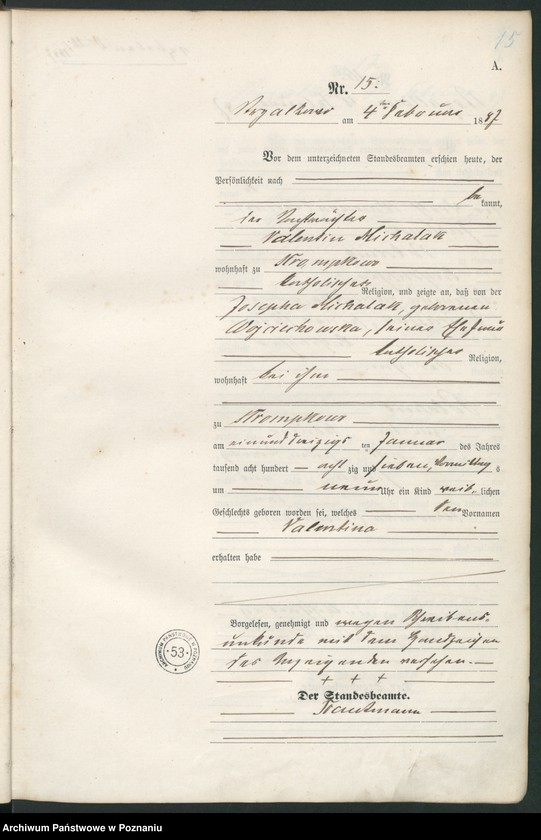 15
A.
Nr. 15.
am 4ten Februar 1887
Vor dem unterzeichneten Standesbeamten erschien heute, der
Persönlichkeit nach
be kannt,
der
Valentin Michalak
wohnhaft zu
katholischer Religion, und zeigte an, daß von der
Josepha Michalak, geborenen
Wojciechowska, seiner Ehefrau
katholischer Religion,
wohnhaft bei ihm
zu
am einunddreizigsten Januar des Jahres
tausend acht hundert acht zig und sieben, Vormittags
um neun Uhr ein Kind weiblichen
Geschlechts geboren worden sei, welches den Vornamen
Valentina
erhalten habe
Vorgelesen, genehmigt und wegen Schreibens-
unkunde mit dem Handzeichen
des Anzeigenden versehen.
+ + +
Der Standesbeamte.
ARCHIWUM PAŃSTWOWE W POZNANIU
53
Archiwum Państwowe w Poznaniu